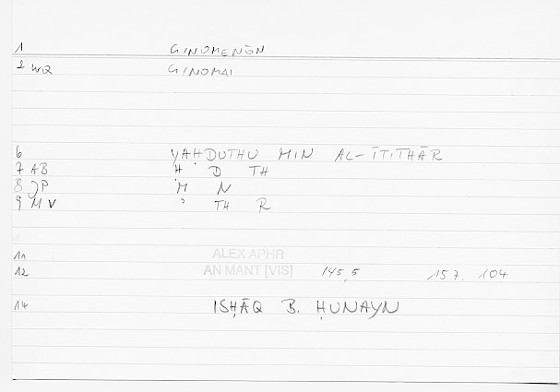 1 GINOMENŌN
2 WQ GINOMAI
6 YAḤDUTHU MIN AL-ĪTITHĀR
7 AB Ḥ D TH
8 JP M N
9 MV ʾ TH R
11 ALEX APHR
12 AN MANT [VIS] 145,5 157. 104
14 ISḤĀQ B. ḤUNAYN